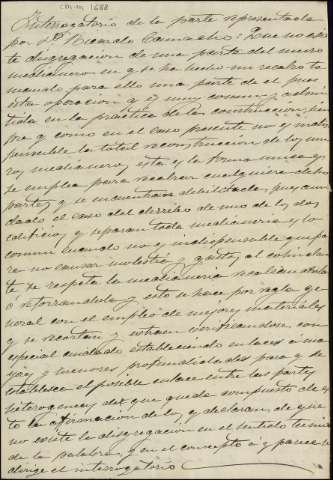 Interrogatorio de la parte representada
por D. Ricardo Camacho: Que no apre
disgregacion de una parte del muro
medianero en q se ha hecho un recalzo to
mando para ello una parte de el, pues
esta operacion es muy comun y admi
tida en la práctica de la construccion, siem
pre q como en el caso presente no es indis
pensable la total reconstruccion de los mu
ros medianeros, esta es la forma unica q
se emplea para recalzar cualquiera de las
partes q se encuentran debilitadas, pues aun
dado el caso del derribo de uno de los dos
edificios y separen toda medianeria y lo
comun cuando no es indispensable que pa
ra no causar molestias y gastos al colindan
te se respeta la medianeria recalzandola
ó reforzandola y esto se hace por regla ge
neral con el empleo de mejores materiales
y se recortan y enlazan con
especial cuidado estableciendo enlaces á ma
yores y menores profundidades para q se
establezca el posible enlace entre las partes
heterogeneas de que queda compuesto de es
ta afirmacion de la, y declaran de que
no existe la disgregacion en el sentido tecnico
de la palabra, y en el concepto q parece se
dirige el interrogatorio